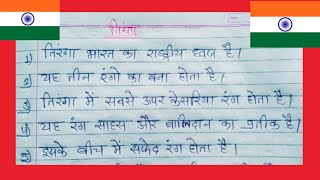 तिरंगा
1) तिरंगा भारत का राष्ट्रीय ध्वज है।
2) यह तीन रंगो का बना होता है।
3) तिरंगा में सबसे ऊपर केसरिया रंग होता है।
4) यह रंग साहस और बालिदान का प्रतीक है।
5) इसके बीच में सफेद रंग होता है।